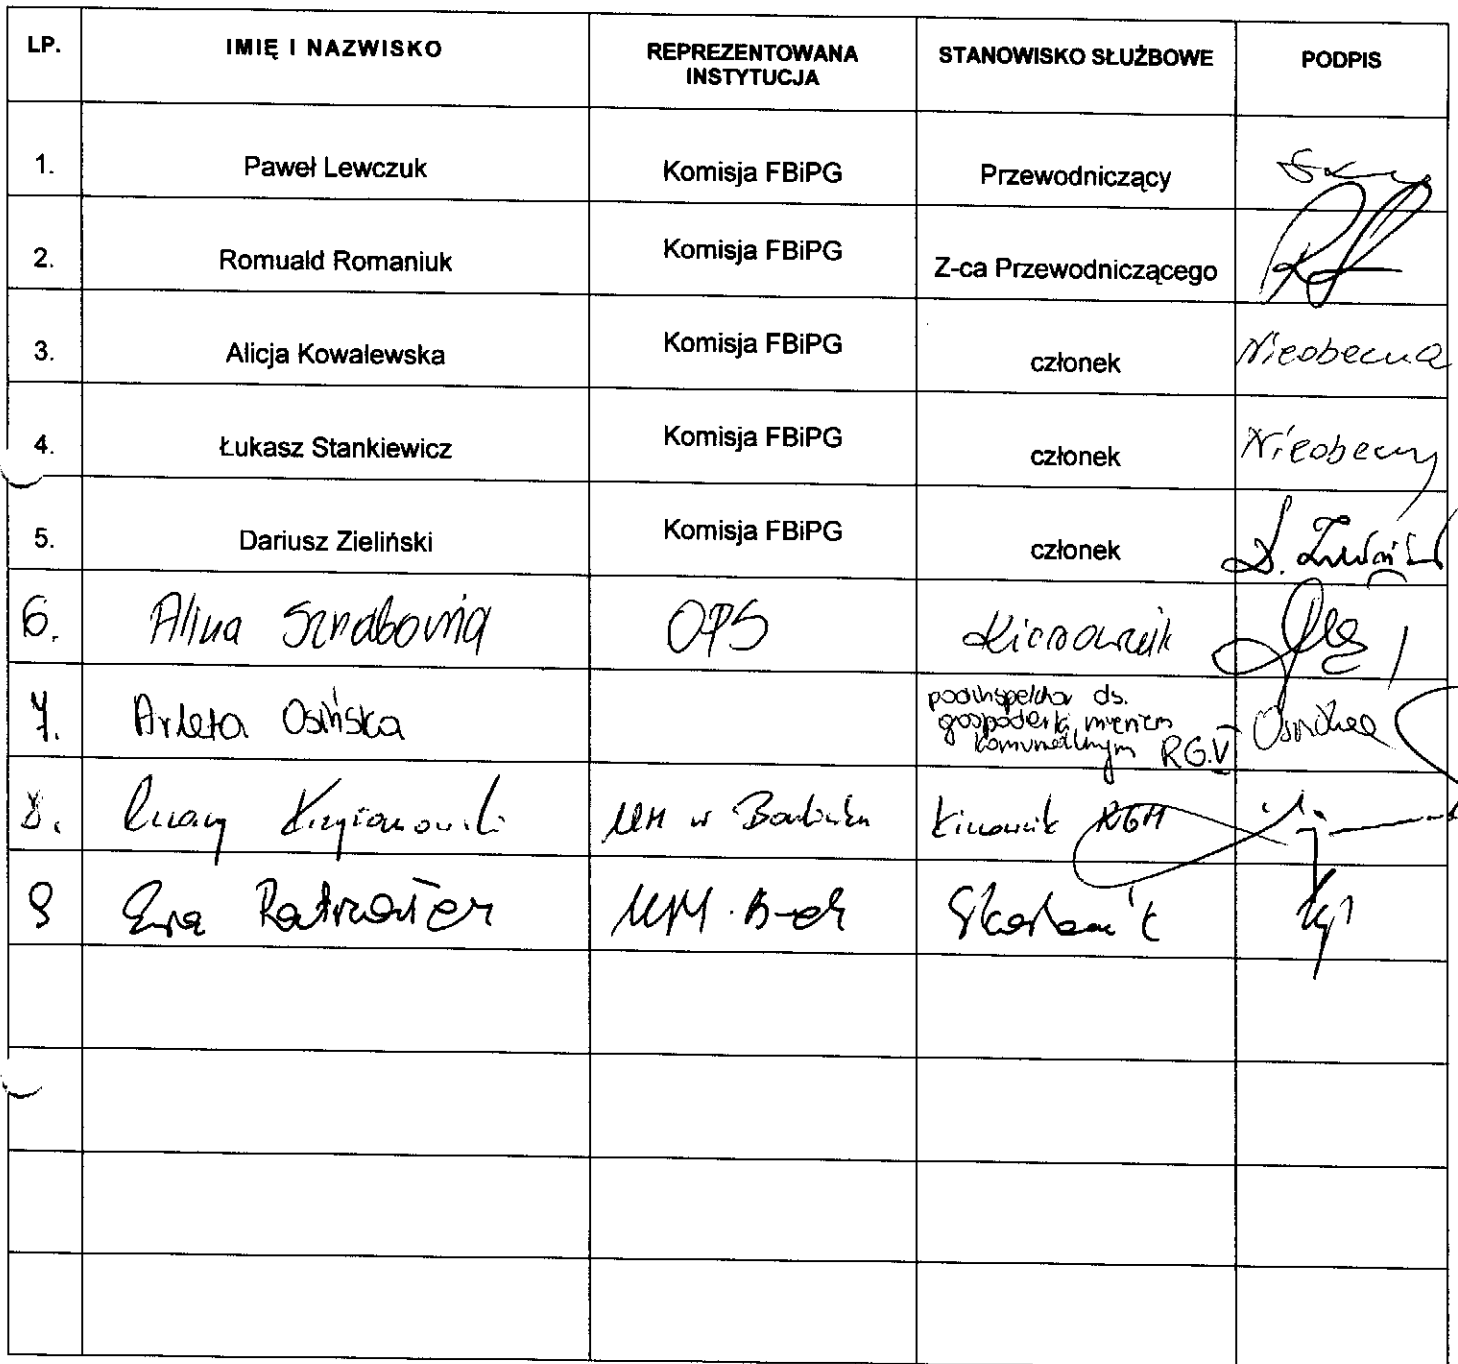 LP. IMIĘ I NAZWISKO REPREZENTOWANA INSTYTUCJA STANOWISKO SŁUŻBOWE PODPIS
1. Paweł Lewczuk Komisja FBiPG Przewodniczący
2. Romuald Romaniuk Komisja FBiPG Z-ca Przewodniczącego
3. Alicja Kowalewska Komisja FBiPG członek Nieobecna
4. Łukasz Stankiewicz Komisja FBiPG członek Nieobecny
5. Dariusz Zieliński Komisja FBiPG członek D. Zieliński
6. Alina OPS Kierownik
7. Arleta Osińska podinspektor ds.
gospodarki mieniem
komunalnym RG.V Osińska
8. UM w Kierownik RGM
9 Ewa UM Skarbnik